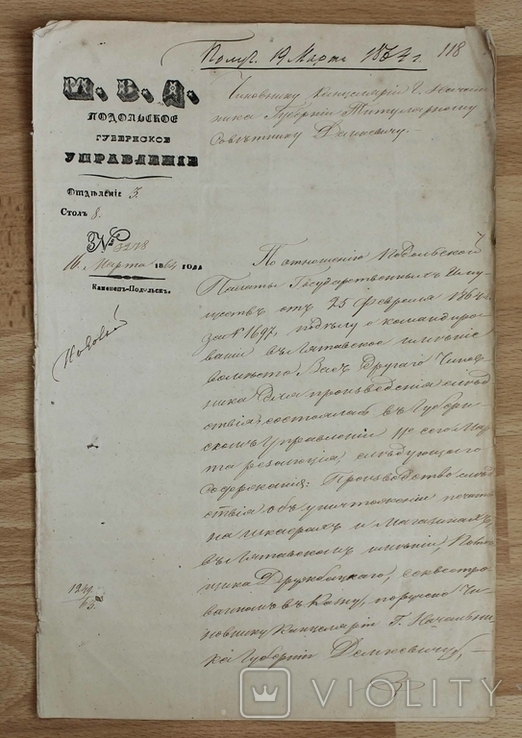 Получ. 19 Марта 1864 г.
118
М. В. Д.
ПОДОЛЬСКОЕ
ГУБЕРНСКОЕ
УПРАВЛЕНІЕ
Отдѣленіе 3.
Столъ 8.
№ 3278
16 Марта 1864 ГОДА
Каменецъ-Подольскъ.
Чиновнику Канцеляріи Г. Началь
ника Губерніи Титулярному
Совѣтнику
По отношенію Подольской
Палаты Государственныхъ Иму
ществъ отъ 25 Февраля 1864 г.
за № 1697, по дѣлу о командиро
ваніи въ имѣніе
вмѣсто Васъ другаго Чинов
ника для произведенія слѣд
ствія, состоялась въ Губерн
скомъ Управленіи 11 сего Мар
та резолюція слѣдующаго
содержанія: Производство слѣд
ствія объ уничтоженіи печатей
на и Магазинахъ
въ имѣніи, Помѣ
щика Дружбацкаго, секвестро
ванномъ въ Казну, поручено Чи
новнику Канцеляріи Г. Начальни
ка Губерніи
1244
63.
VIOLITY